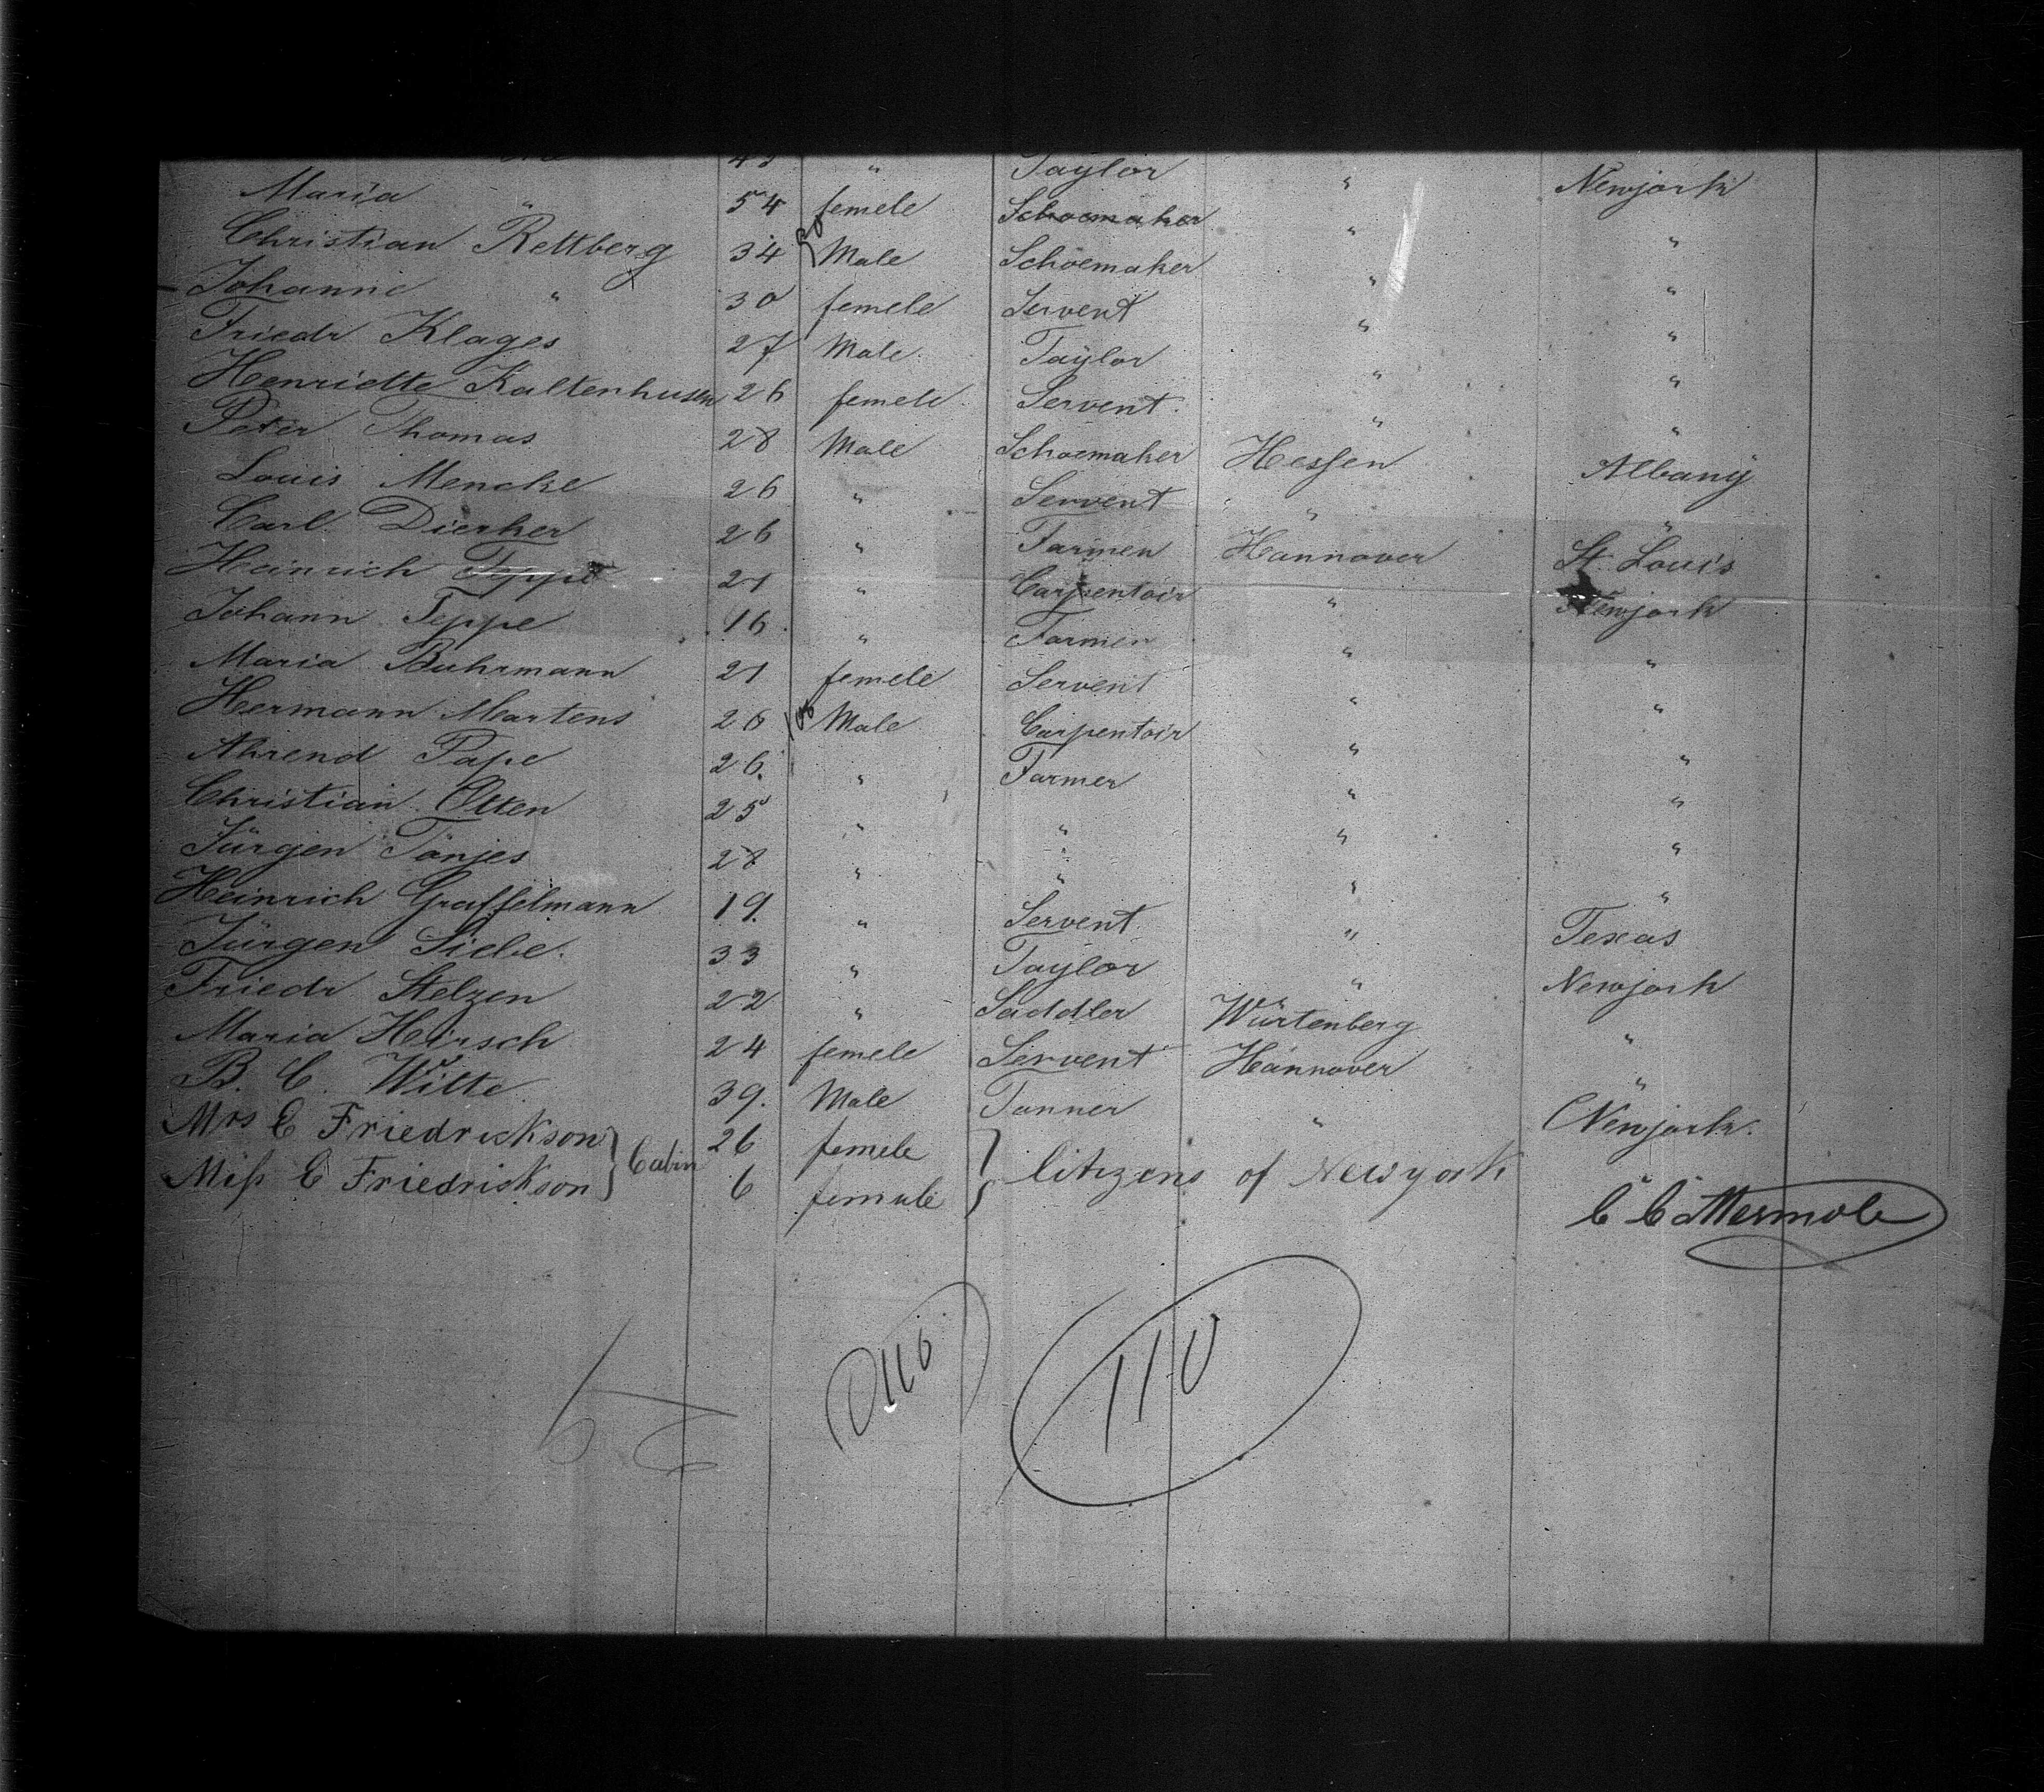 Taylor " Newjork
Maria " 54 femele Schoemaker " "
Christian Rettberg 34 Male Schoemaker " "
Johanne " 30 femele Servent " "
Friedr Klages 27 Male Taylor " "
Henriette Kaltenhusen 26 femele Servent " "
Peter Thomas 28 Male Schoemaker Hessen Albany
Louis Mencke 26 " Servent " "
Carl Dierker 26 " Farmen Hannover St. Louis
Heinrich Teppe 21 " Carpentoir " Newjork
Johann Teppe 16 " Farmen " "
Maria Buhrmann 21 femele Servent " "
Hermann Martens 26 Male Carpentoir " "
Ahrend Pape 26 " Farmer " "
Christian Otten 25 " " " "
Jürgen Tönjes 28 " " " "
Heinrich Graffelmann 19 " Servent " Texas
Jürgen Siebe 33 " Taylor " Newjork
Friedr Stelzen 22 " Saddler Würtenberg "
Maria Hirsch 24 femele Servent Hannover "
B. C. Witte 39. Male Tanner " Newjork.
Mrs C Friedrickson } Cabin 26 femele } Citizens of Newyork
Miss C Friedrickson 6 female
110
110